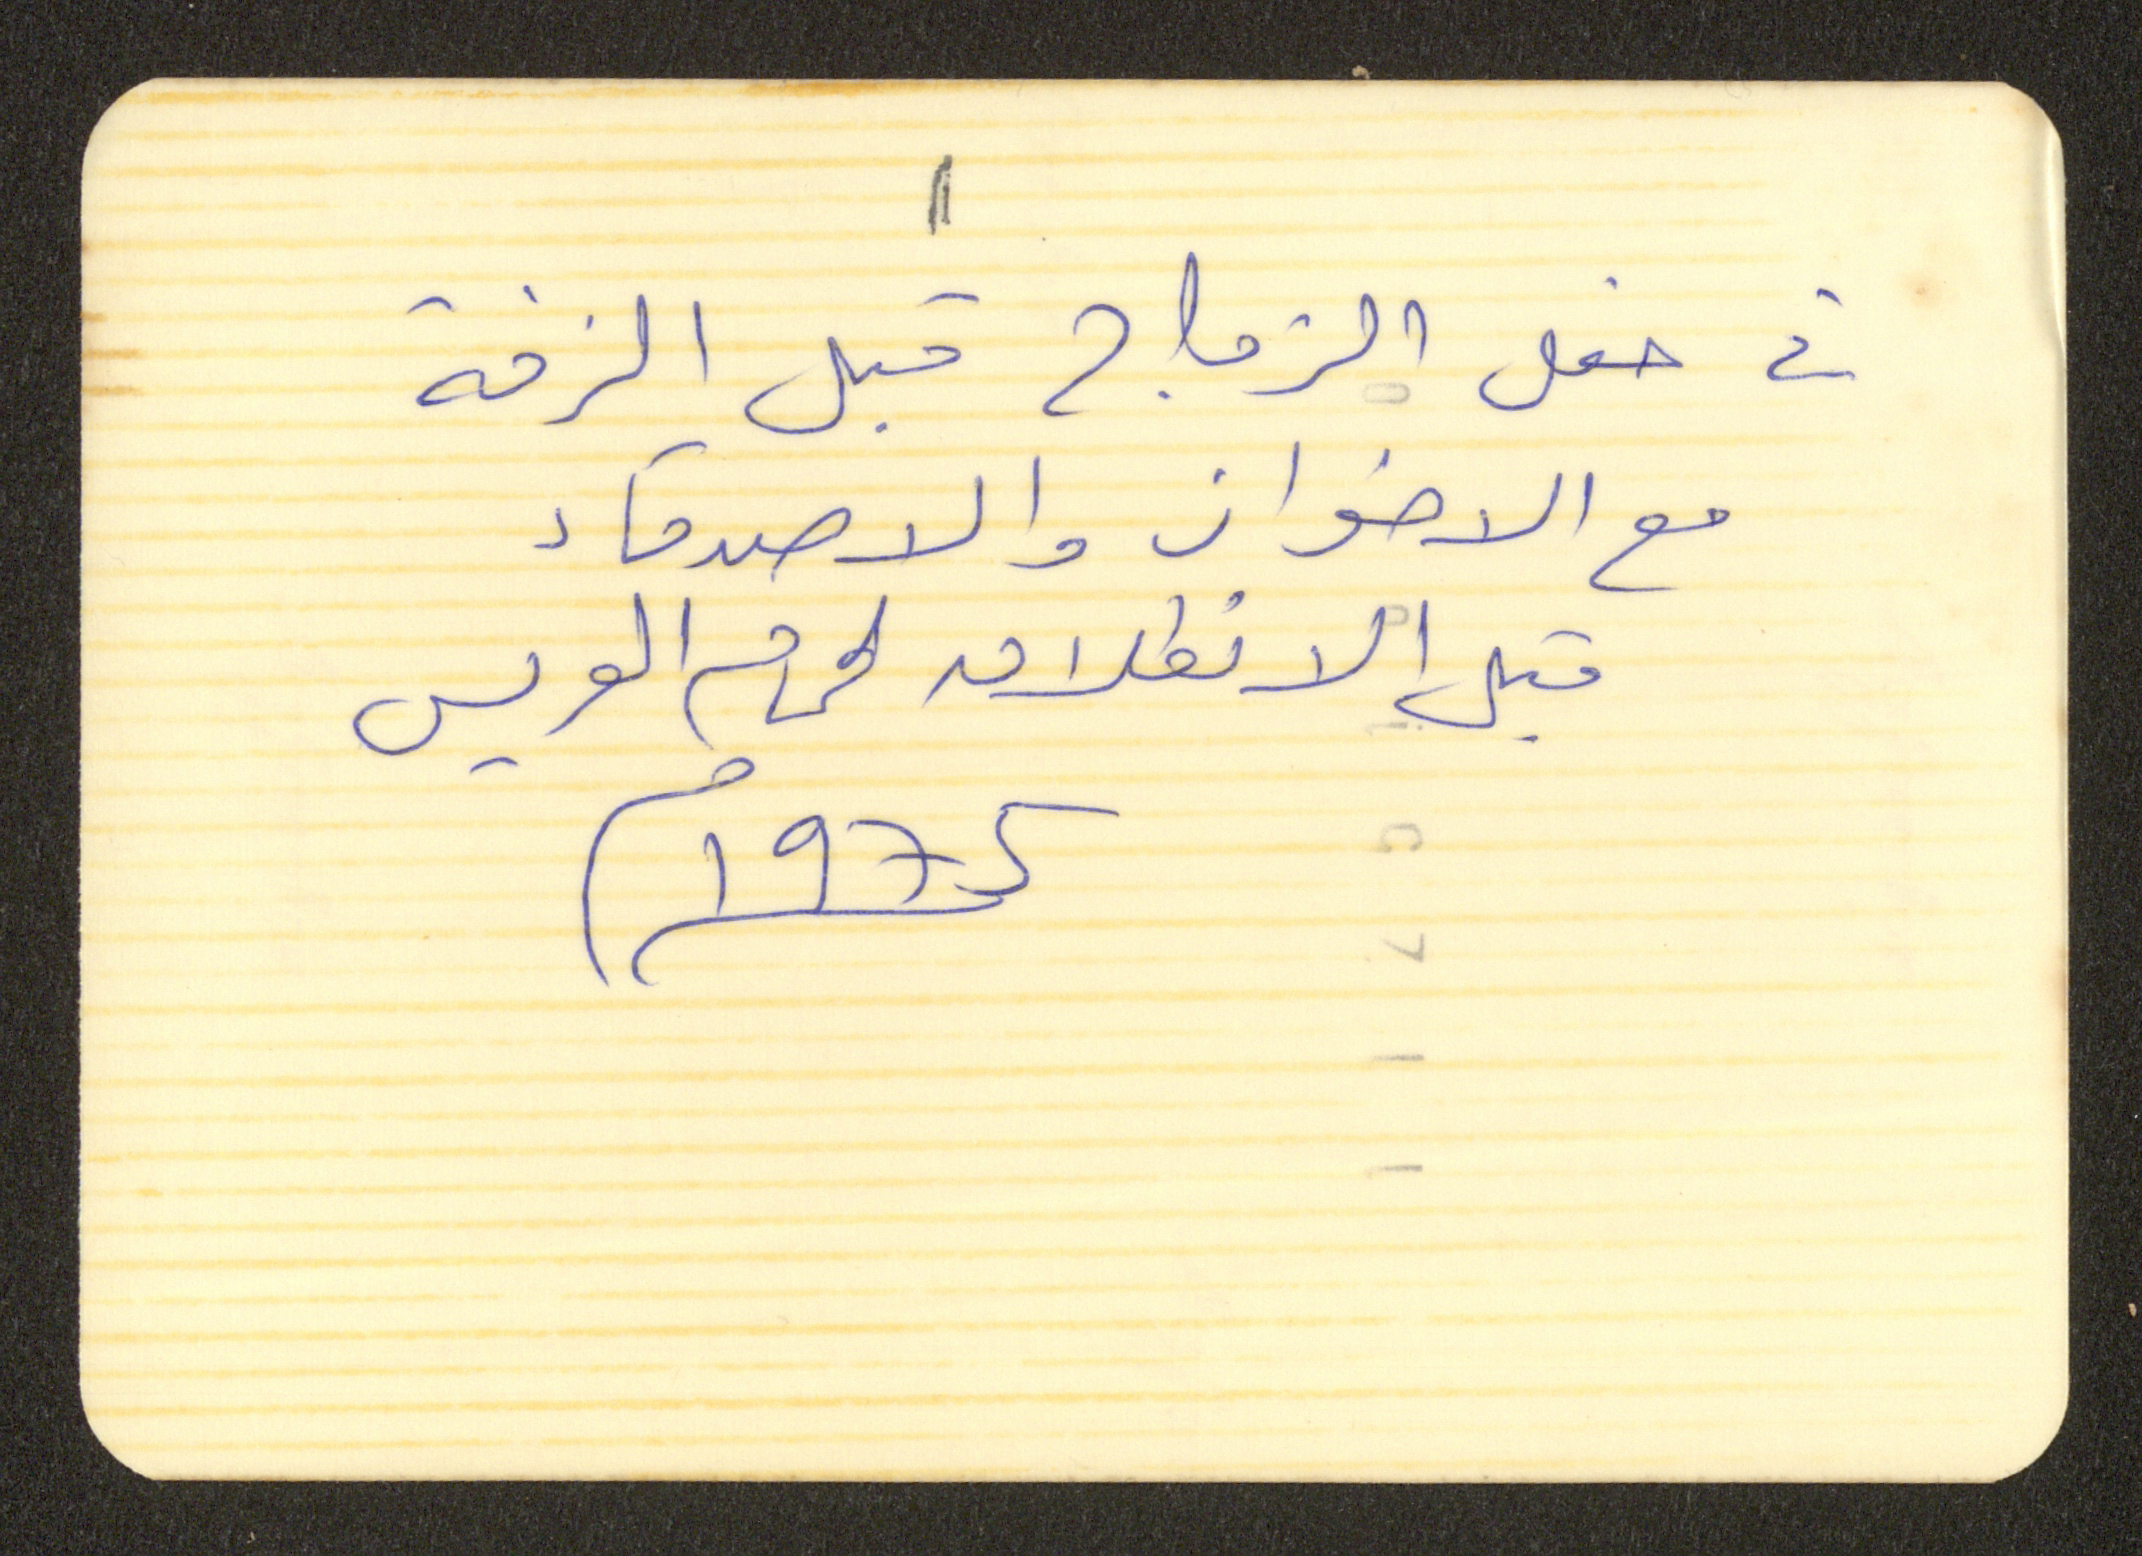 في حفل الزواج قبل الزفة
مع الاخوان والاصدقاء
قبل الانطلاق لحمام العريس
1975م